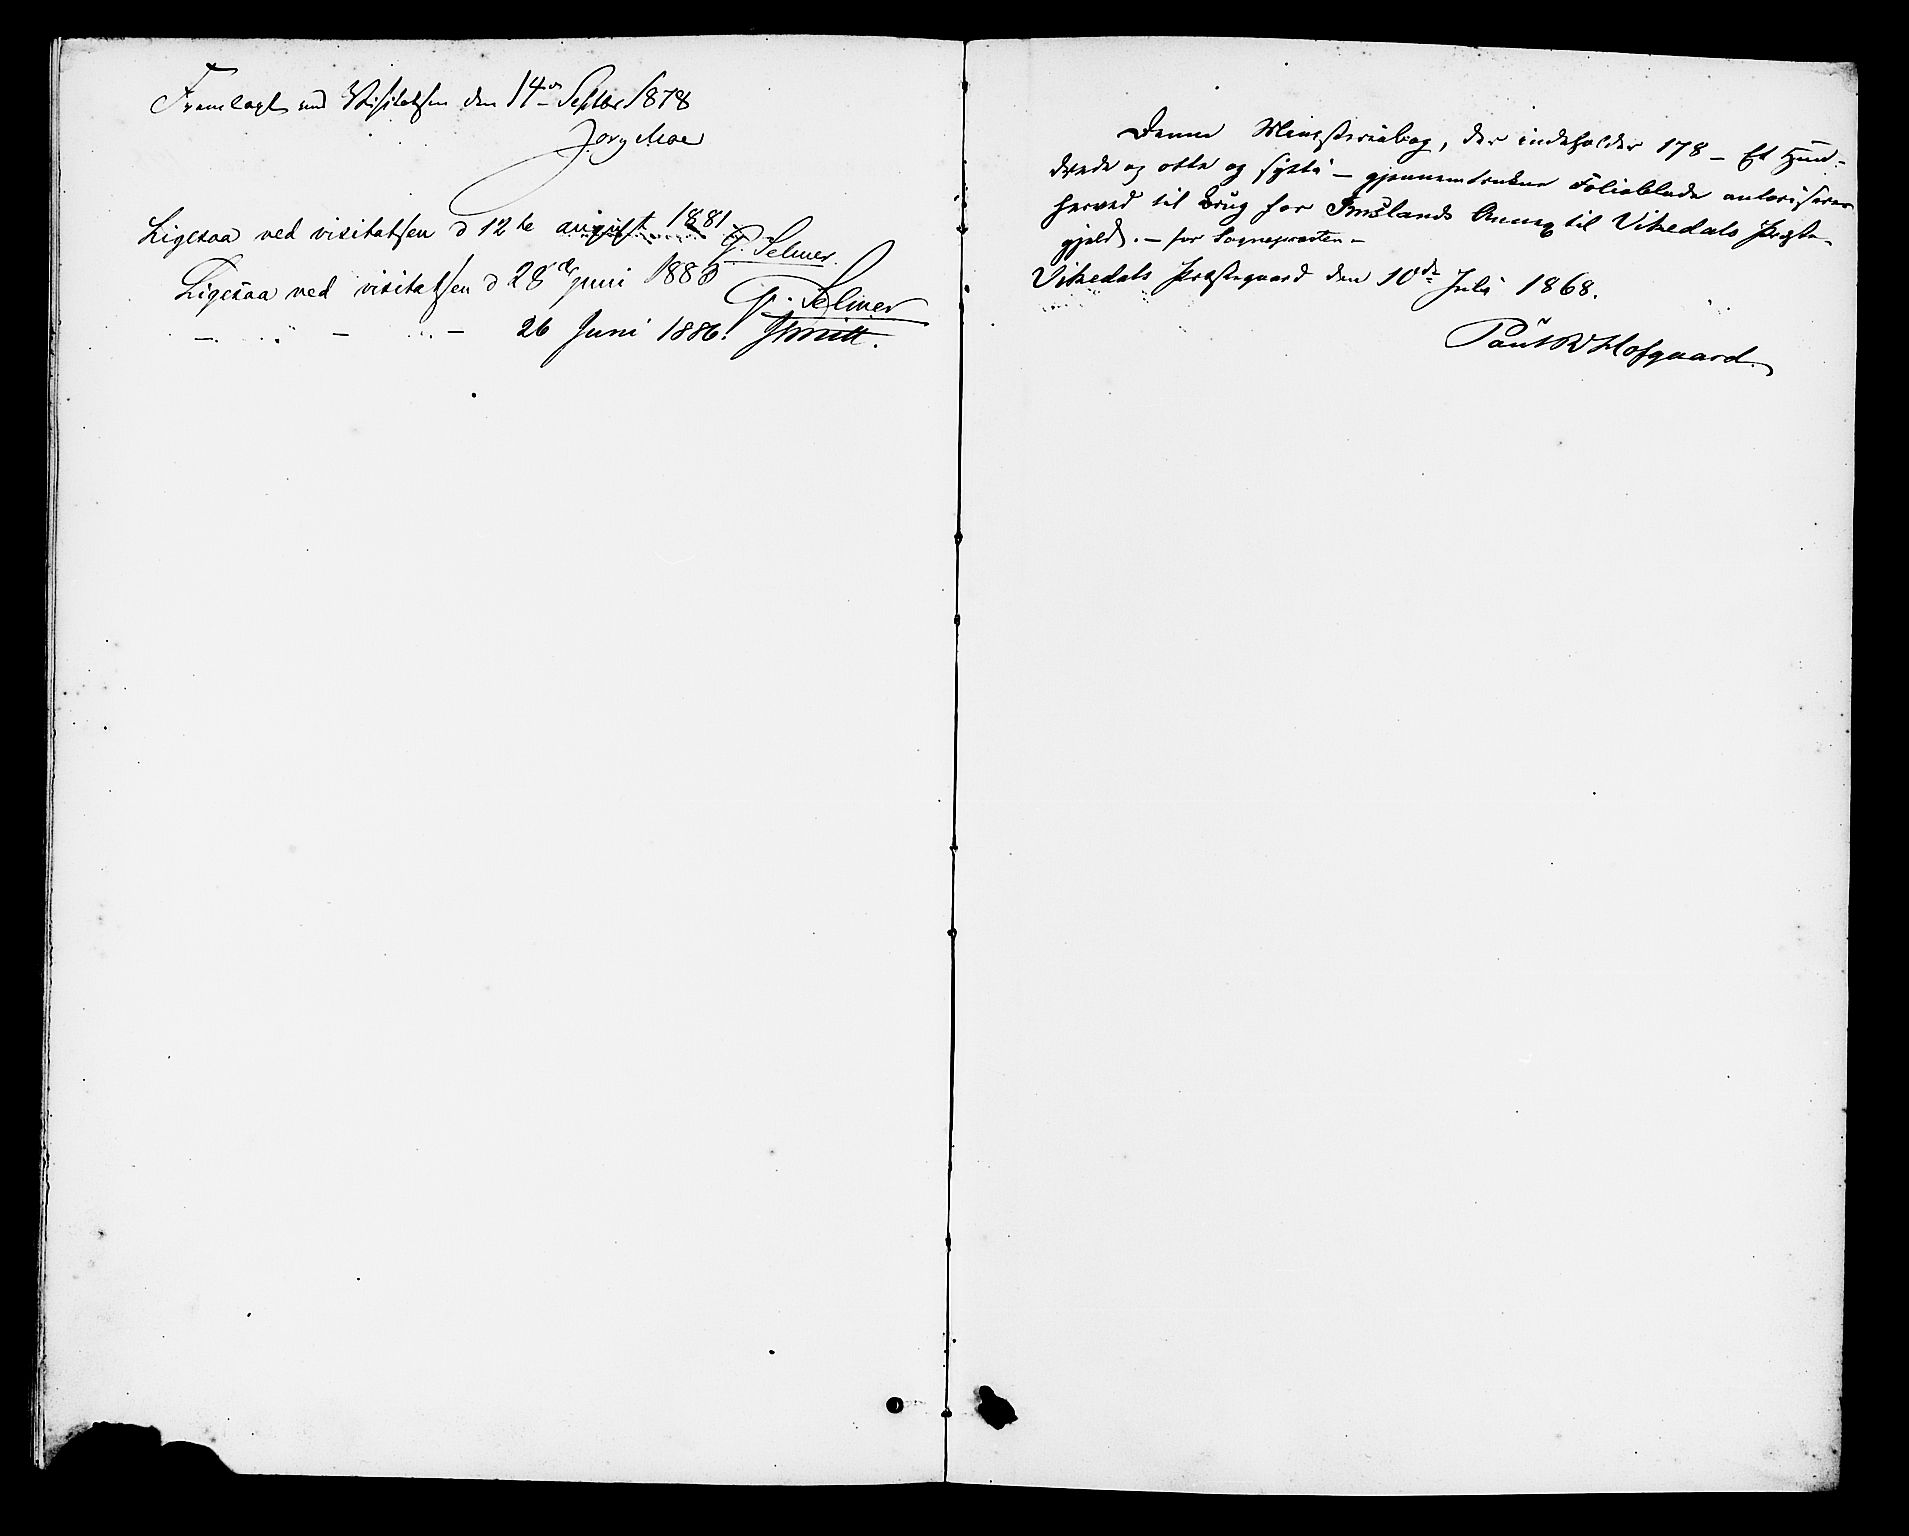 Fremlagt ved Visitatsen den 14de Septbr 1878
Jørg Moe
Ligesaa ved visitatsen d 12te august 1881
J. Selmer.
Ligesaa ved visitatsen d 28de juni 1883
J. Selmer
— " — " — 26 Juni 1886.
Denne Ministerialbog, der indeholder 178 – Et Hun-
drede og otte og sytti – gjennemtrukne Folioblade autoriseres
herved til Brug for Imslands Annex til Vikedals Præste-
gjeld. – for Sognepræsten –
Vikedals Præstegaard den 10de Juli 1868.
Paul Hofgaard.